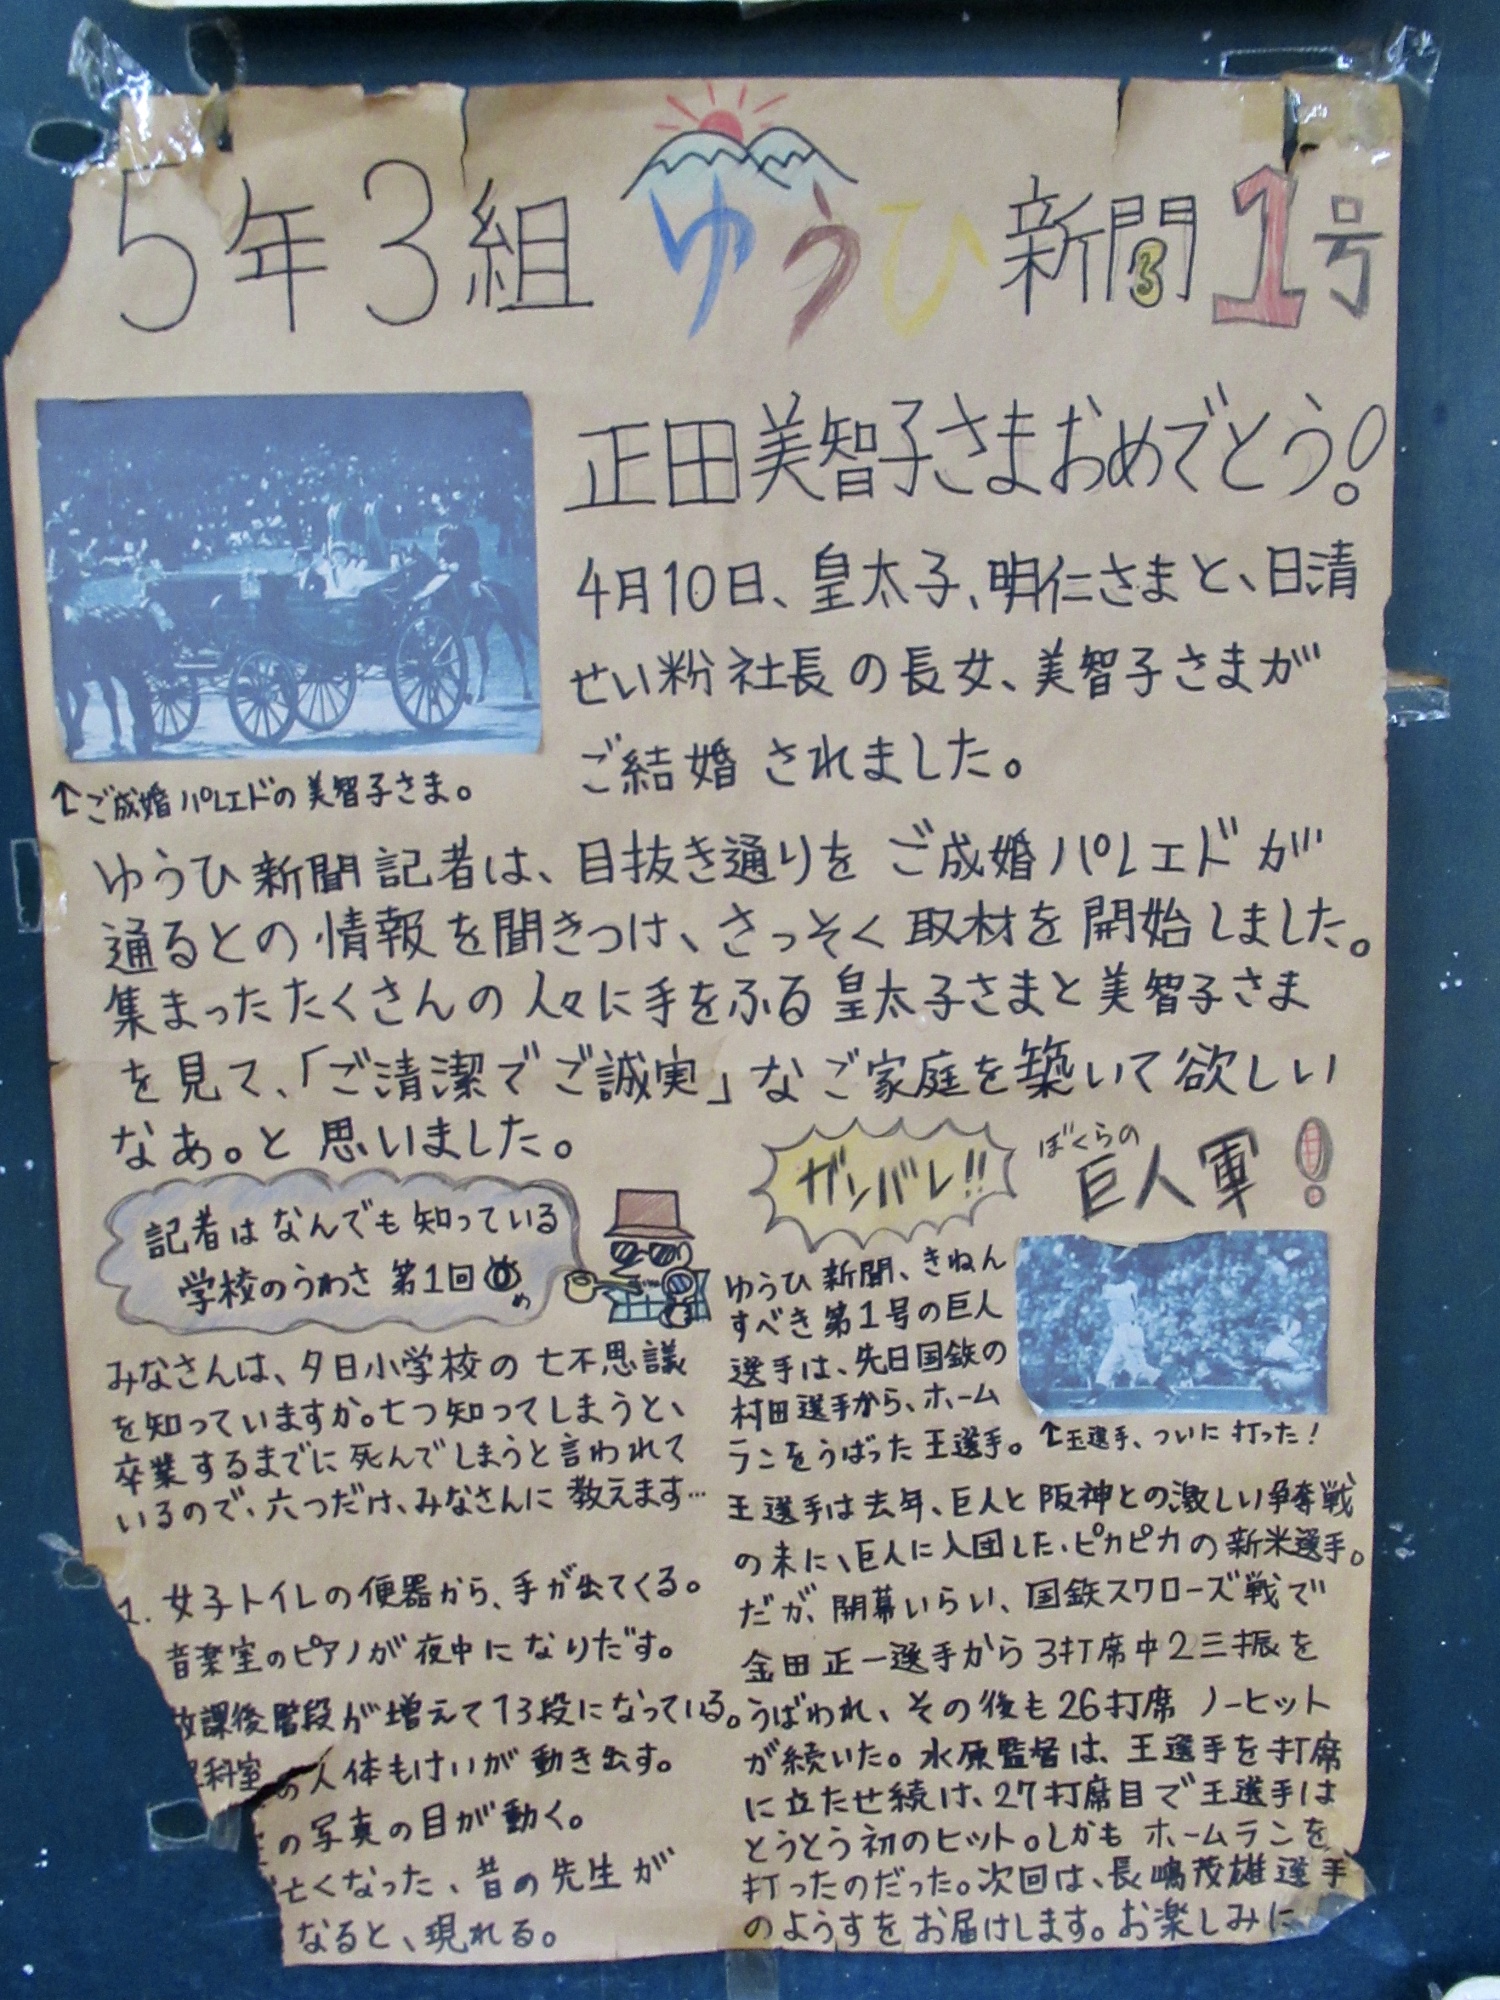 5年3組 ゆうひ新聞1号
正田美智子さまおめでとう!
4月10日、皇太子、明仁さまと、日清
せい粉社長の長女、美智子さまが
ご結婚されました。
↑ご成婚パレエドの美智子さま。
ゆうひ新聞記者は、目抜き通りをご成婚パレエドが
通るとの情報を聞きつけ、さっそく取材を開始しました。
集まったたくさんの人々に手をふる皇太子さまと美智子さま
を見て、「ご清潔でご誠実」なご家庭を築いて欲しい
なあ。と思いました。
記者はなんでも知っている
学校のうわさ 第1回
みなさんは、夕日小学校の七不思議
を知っていますか。七つ知ってしまうと、
卒業するまでに死んでしまうと言われて
いるので、六つだけ、みなさんに教えます…
1. 女子トイレの便器から、手が出てくる。
音楽室のピアノが夜中になりだす。
放課後階段が増えて13段になっている。
科室の人体もけいが動き出す。
の写真の目が動く。
亡くなった、昔の先生が
なると、現れる。
ガンバレ!!
ぼくらの
巨人軍!
ゆうひ新聞、きねん
すべき第1号の巨人
選手は、先日国鉄の
村田選手から、ホーム
ランをうばった王選手。
↑王選手、ついに打った!
王選手は去年、巨人と阪神との激しい争奪戦
の末に、巨人に入団した、ピカピカの新米選手。
だが、開幕いらい、国鉄スワローズ戦で
金田正一選手から3打席中2三振を
うばわれ、その後も26打席ノーヒット
が続いた。水原監督は、王選手を打席
に立たせ続け、27打席目で王選手は
とうとう初のヒット。しかもホームランを
打ったのだった。次回は、長嶋茂雄選手
のようすをお届けします。お楽しみに